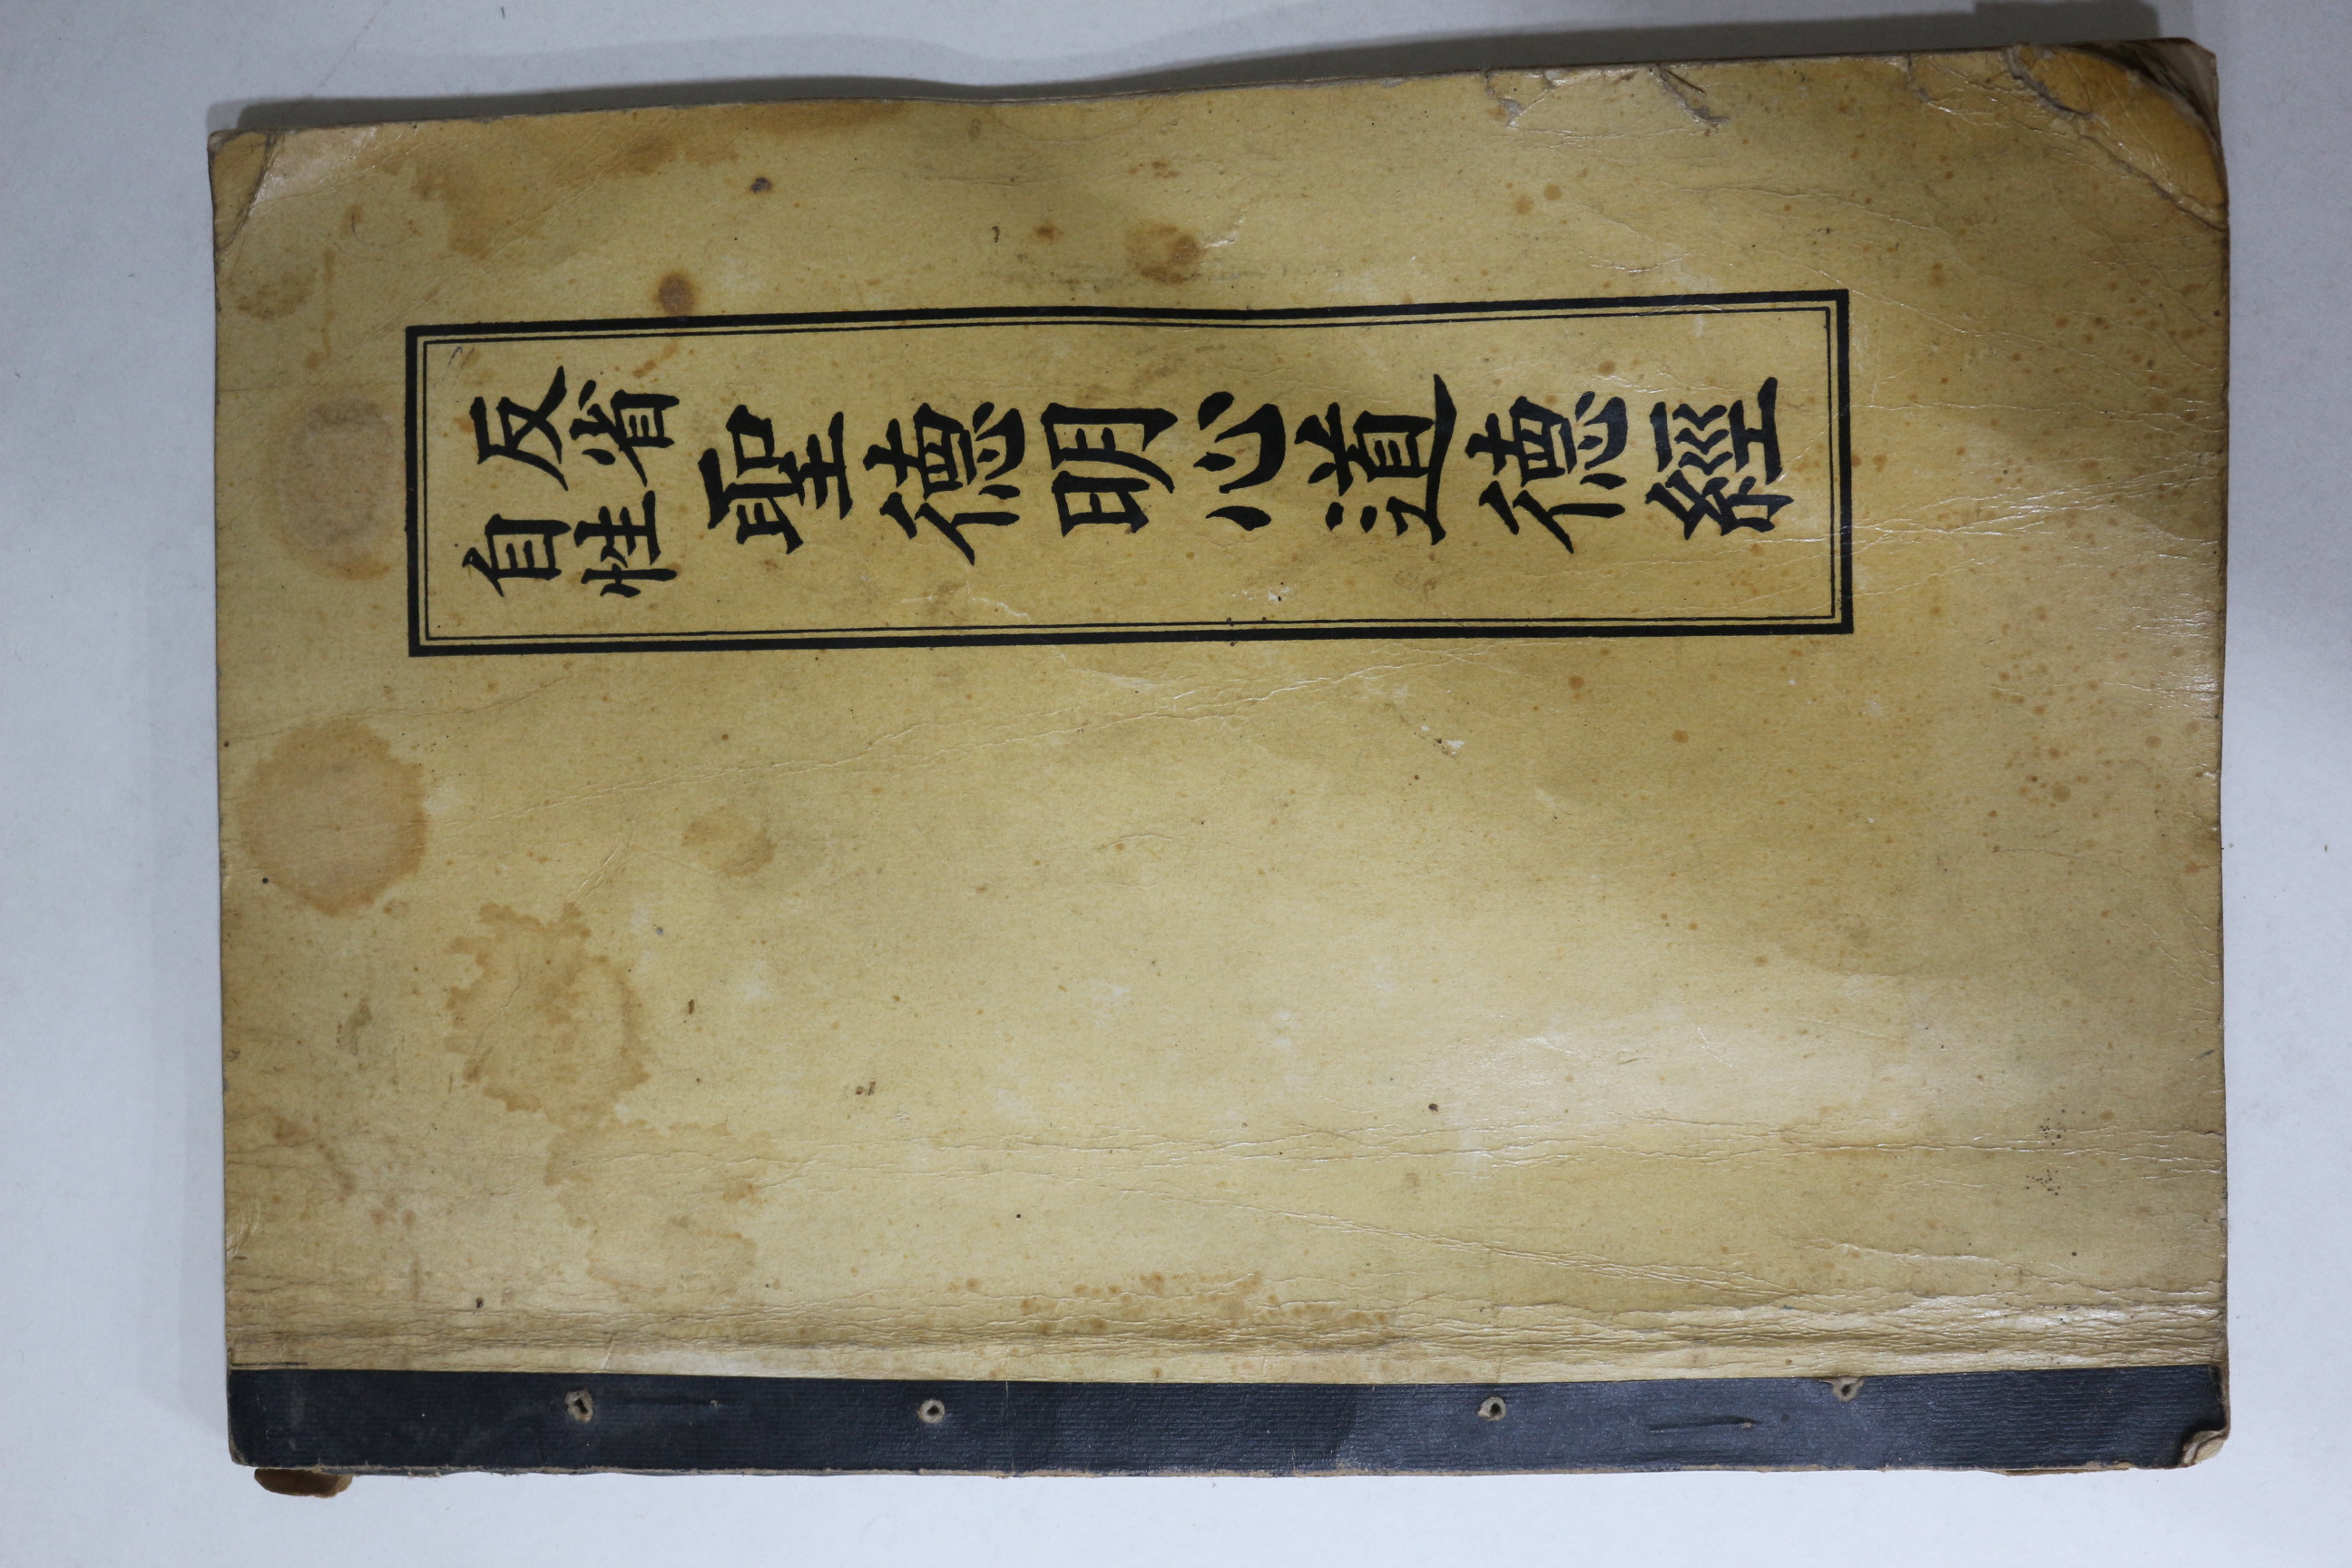 反省
自性
聖徳明心道徳經